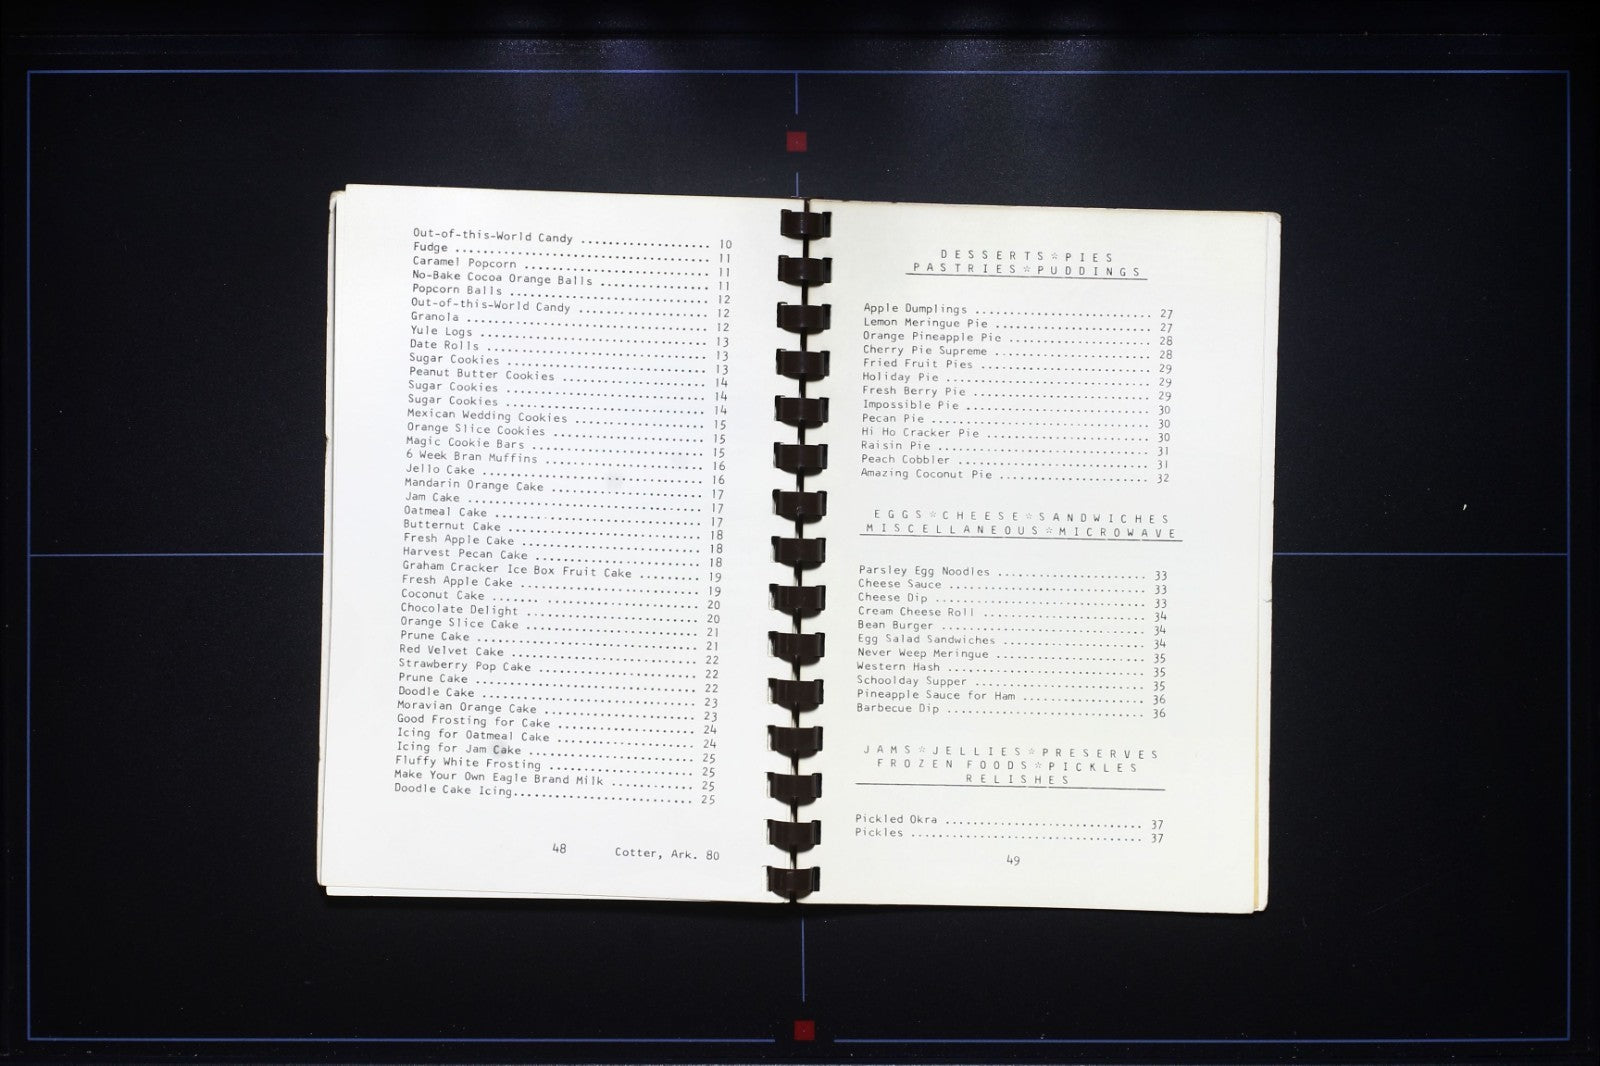 Out-of-this-World Candy ................... 10
Fudge .................................. 11
Caramel Popcorn ......................... 11
No-Bake Cocoa Orange Balls ................ 11
Popcorn Balls ........................... 12
Out-of-this-World Candy ................... 12
Granola ................................ 12
Yule Logs .............................. 13
Date Rolls ............................. 13
Sugar Cookies ........................... 13
Peanut Butter Cookies ..................... 14
Sugar Cookies ........................... 14
Sugar Cookies ........................... 14
Mexican Wedding Cookies ................... 15
Orange Slice Cookies ...................... 15
Magic Cookie Bars ........................ 15
6 Week Bran Muffins ...................... 16
Jello Cake ............................. 16
Mandarin Orange Cake ..................... 17
Jam Cake ............................... 17
Oatmeal Cake ............................ 17
Butternut Cake .......................... 18
Fresh Apple Cake ......................... 18
Harvest Pecan Cake ....................... 18
Graham Cracker Ice Box Fruit Cake ......... 19
Fresh Apple Cake ......................... 19
Coconut Cake ............................ 20
Chocolate Delight ........................ 20
Orange Slice Cake ........................ 21
Prune Cake ............................. 21
Red Velvet Cake .......................... 22
Strawberry Pop Cake ...................... 22
Prune Cake ............................. 22
Doodle Cake ............................ 23
Moravian Orange Cake ..................... 23
Good Frosting for Cake .................... 24
Icing for Oatmeal Cake .................... 24
Icing for Jam Cake ....................... 25
Fluffy White Frosting ..................... 25
Make Your Own Eagle Brand Milk ............ 25
Doodle Cake Icing.......................... 25
48 Cotter, Ark. 80
DESSERTS☆PIES
PASTRIES☆PUDDINGS
Apple Dumplings .......................... 27
Lemon Meringue Pie ....................... 27
Orange Pineapple Pie ...................... 28
Cherry Pie Supreme ....................... 28
Fried Fruit Pies ......................... 29
Holiday Pie ............................. 29
Fresh Berry Pie .......................... 29
Impossible Pie ........................... 30
Pecan Pie ............................... 30
Hi Ho Cracker Pie ........................ 30
Raisin Pie .............................. 31
Peach Cobbler ............................ 31
Amazing Coconut Pie ...................... 32
EGGS☆CHEESE☆SANDWICHES
MISCELLANEOUS☆MICROWAVE
Parsley Egg Noodles ...................... 33
Cheese Sauce ............................ 33
Cheese Dip .............................. 33
Cream Cheese Roll ........................ 34
Bean Burger ............................. 34
Egg Salad Sandwiches ..................... 34
Never Weep Meringue ...................... 35
Western Hash ............................ 35
Schoolday Supper ......................... 35
Pineapple Sauce for Ham ................... 36
Barbecue Dip ............................ 36
JAMS☆JELLIES☆PRESERVES
FROZEN FOODS☆PICKLES
RELISHES
Pickled Okra ............................ 37
Pickles ................................. 37
49